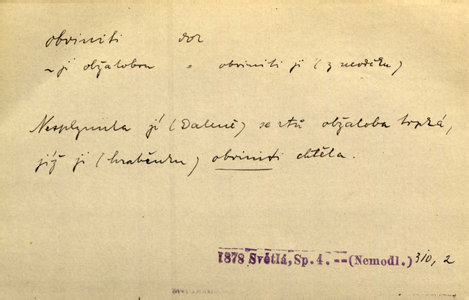 obviniti dok
~ ji obžalobou = obviniti ji (z nevděku)
Nesplynula jí (Daleně) se rtů obžaloba trpká,
jíž ji (hraběnku) obviniti chtěla.
1878 Světlá, Sp. 4. -- (Nemodl.) 310, 2